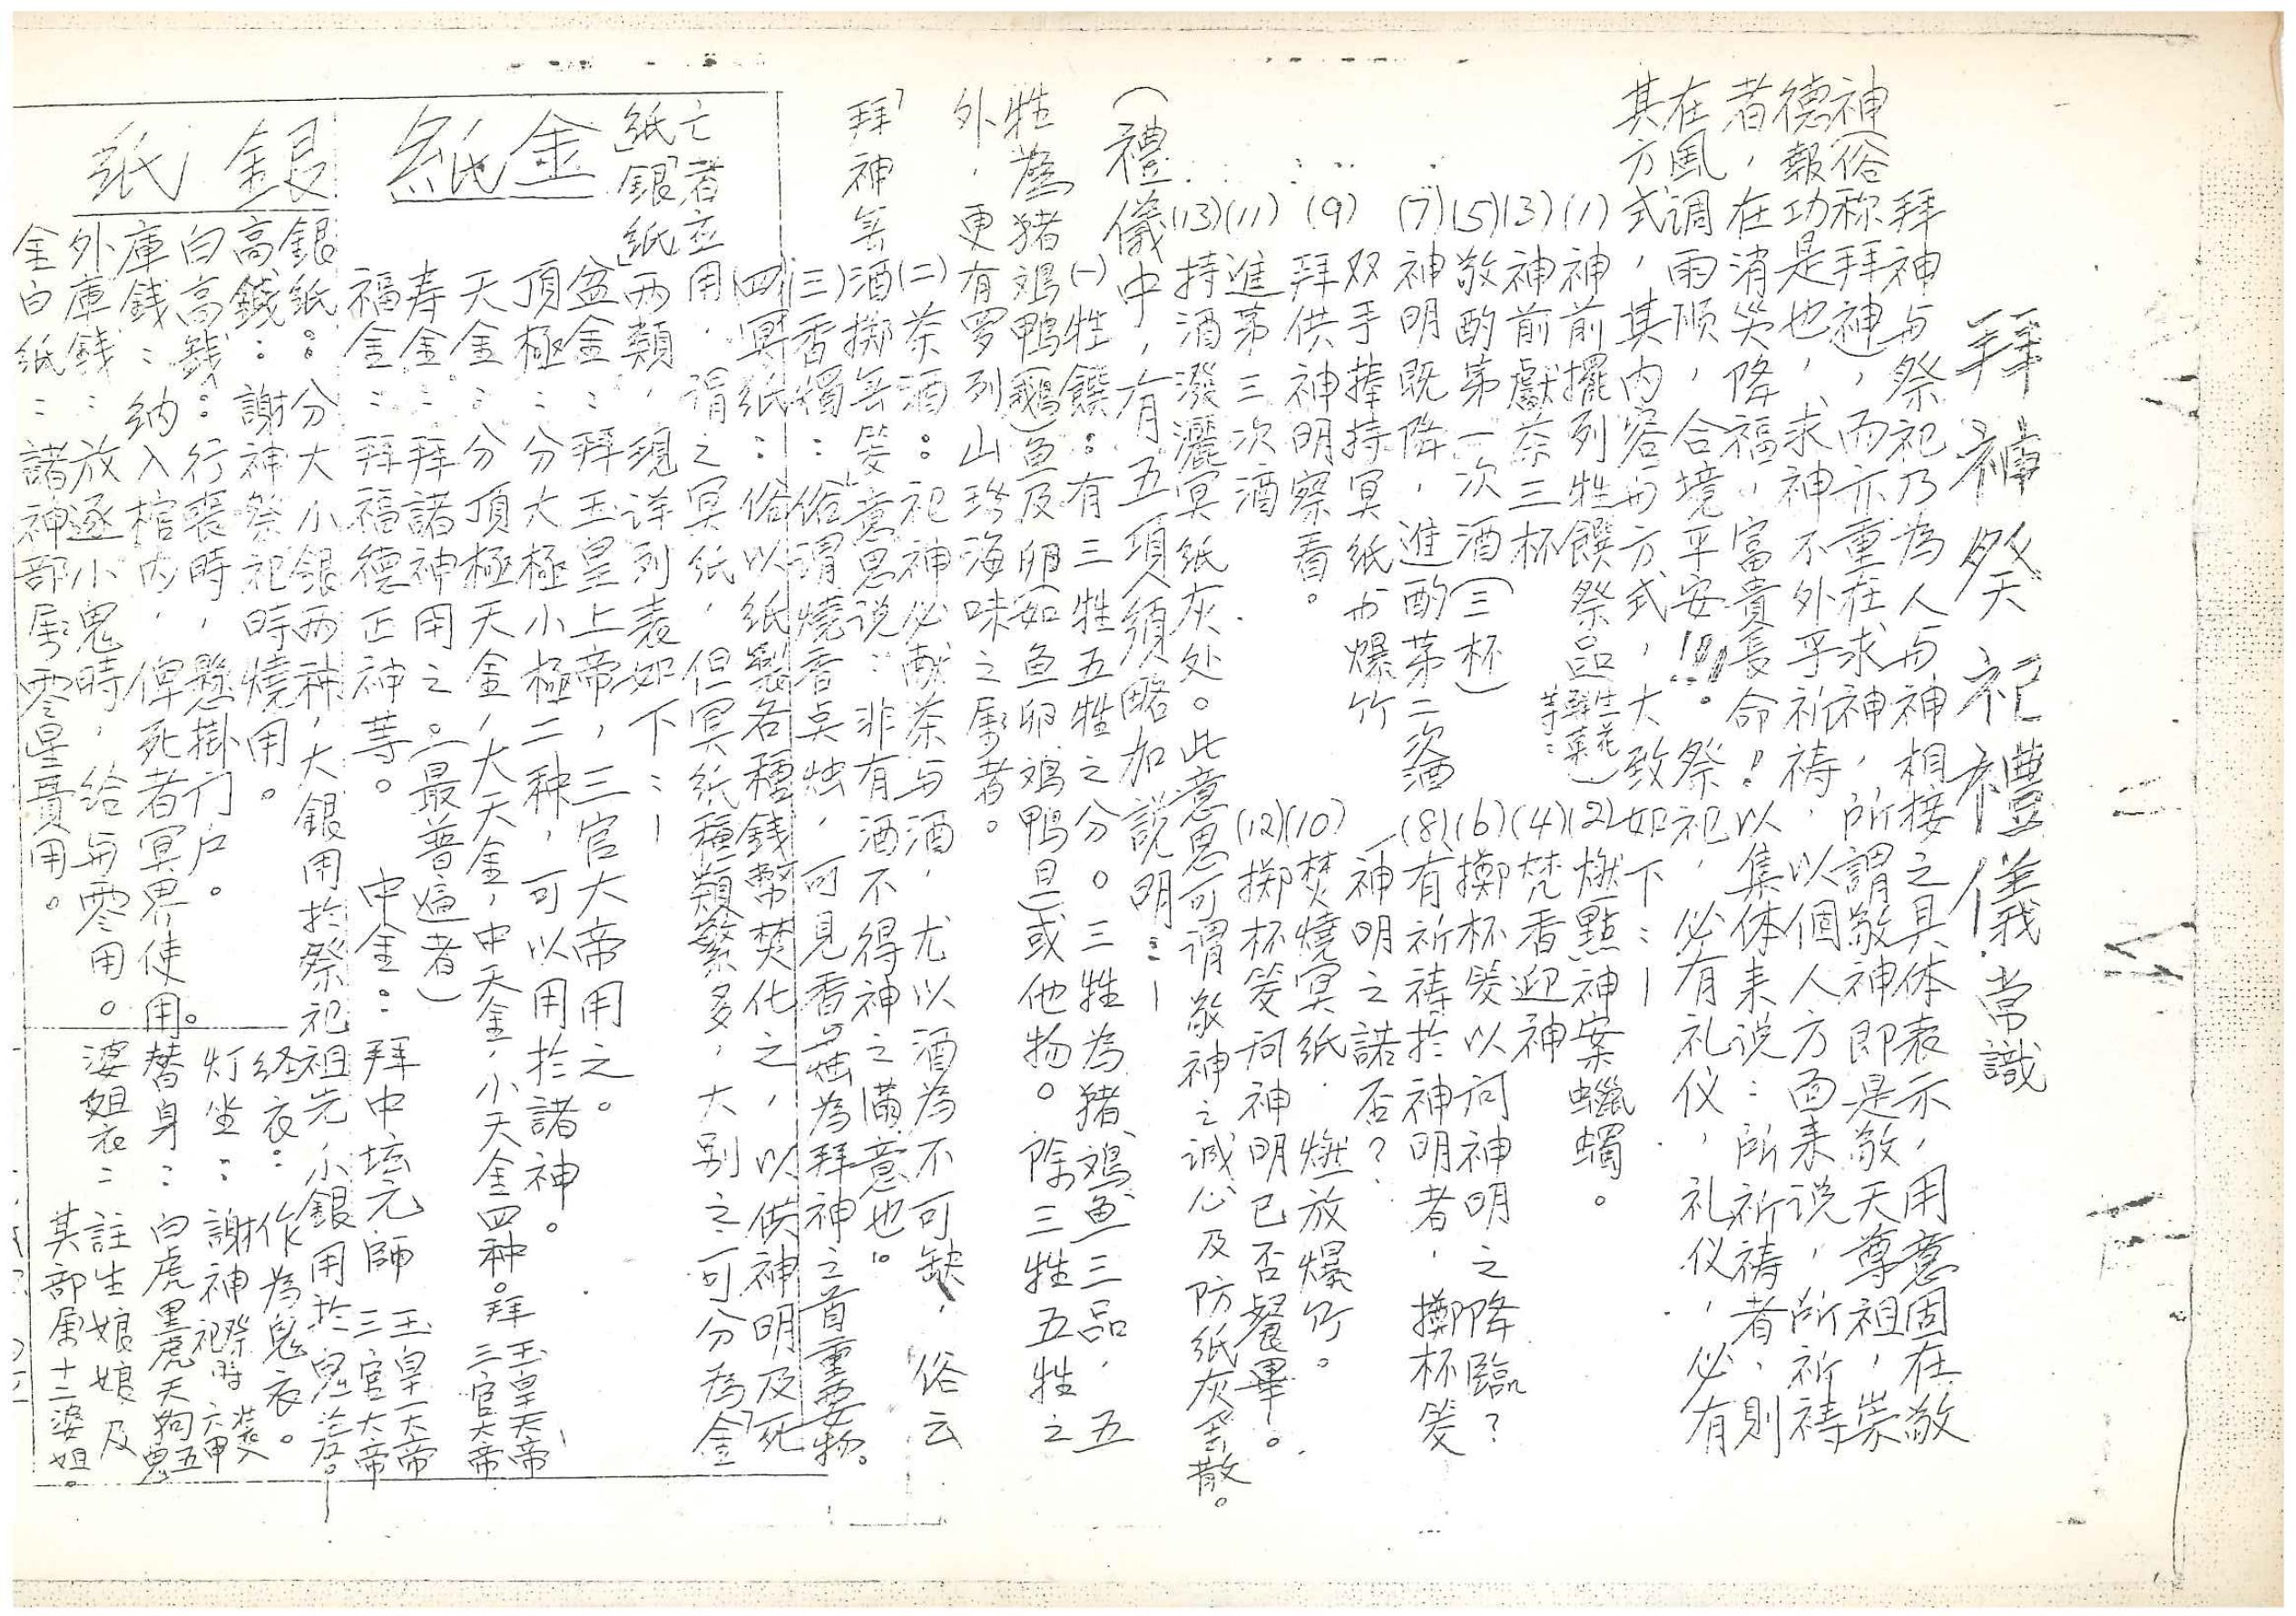 拜神祭祀禮儀常識
拜神与祭祀乃為人与神相接之具体表示,用意固在敬
神(俗称拜神),而亦重在求神,所謂敬神即是敬天尊祖,崇
德報功是也,求神不外乎祈祷,以個人方面来说,所祈祷
者,在消災降福,富貴長命!以集体来说:所祈祷者,則
在風调雨顺,合境平安!!!。祭祀,必有礼仪,礼仪,必有
其方式,其内容与方式,大致如下:—
(1)神前擺列牲饌祭品(生花鮮菓等:) (2)燃點神案蠟蠋。
(3)神前獻茶三杯 (4)焚香迎神
(5)敬酌第一次酒(三杯) (6)擲杯筊以问神明之降臨?
(7)神明既降,進酌第二次酒 (8)有祈祷於神明者,擲杯筊
双手捧持冥紙与爆竹 神明之諾否?
(9)拜供神明察看。 (10)焚燒冥紙.燃放爆竹。
(11)進第三次酒 (12)擲杯筊问神明已否餐畢!。
(13)持酒潑灑冥纸灰处。此意思可謂敬神之诚心及防紙灰之散。
(禮儀中,有五項久須略加說明:—
(一)牲饌:有三牲五牲之分。三牲為猪、鸡、魚三品,五
牲為猪鸡鴨(鵝)魚及卵(如魚卵鸡鴨旦)或他物。除三牲五牲之
外,更有罗列山珍海味之属者。
(二)茶酒:祀神必献茶与酒,尤以酒為不可缺,俗云
「拜神無酒擲無筊」意思说:非有酒不得神之满意也"。
(三)香燭:俗谓燒香点烛,可見香与烛為拜神之首重要物。
(四)冥紙:俗以紙製各種錢幣焚化之,以供神明及死
亡者应用,谓之冥紙,但冥紙種類繁多,大别之可分為「金
紙」「銀紙」两類,現详列表如下:—
金紙
盆金:拜玉皇上帝,三官大帝用之。
頂極:分大極小極二种,可以用於諸神。
天金:分頂極天金,大天金,中天金,小天金四种。拜玉皇天帝、三官大帝
寿金:拜諸神用之。(最普遍者)
福金:拜福德正神等。 中金:拜中坛元師 玉皇大帝 三官大帝
銀紙
銀紙:分大小銀两种,大銀用於祭祀祖先,小銀用於鬼差。
高錢:謝神祭祀時燒用。 经衣:作為鬼衣。
白高錢:行喪時,懸掛门户。 灯坐:謝神祭祀時
庫錢:納入棺内,俾死者冥界使用。替身:白虎黑虎天狗五鬼
外庫錢:放逐小鬼時,给与零用。婆姐衣:註生娘娘及
其部属十二婆姐。
金白紙:諸神部属零星費用。